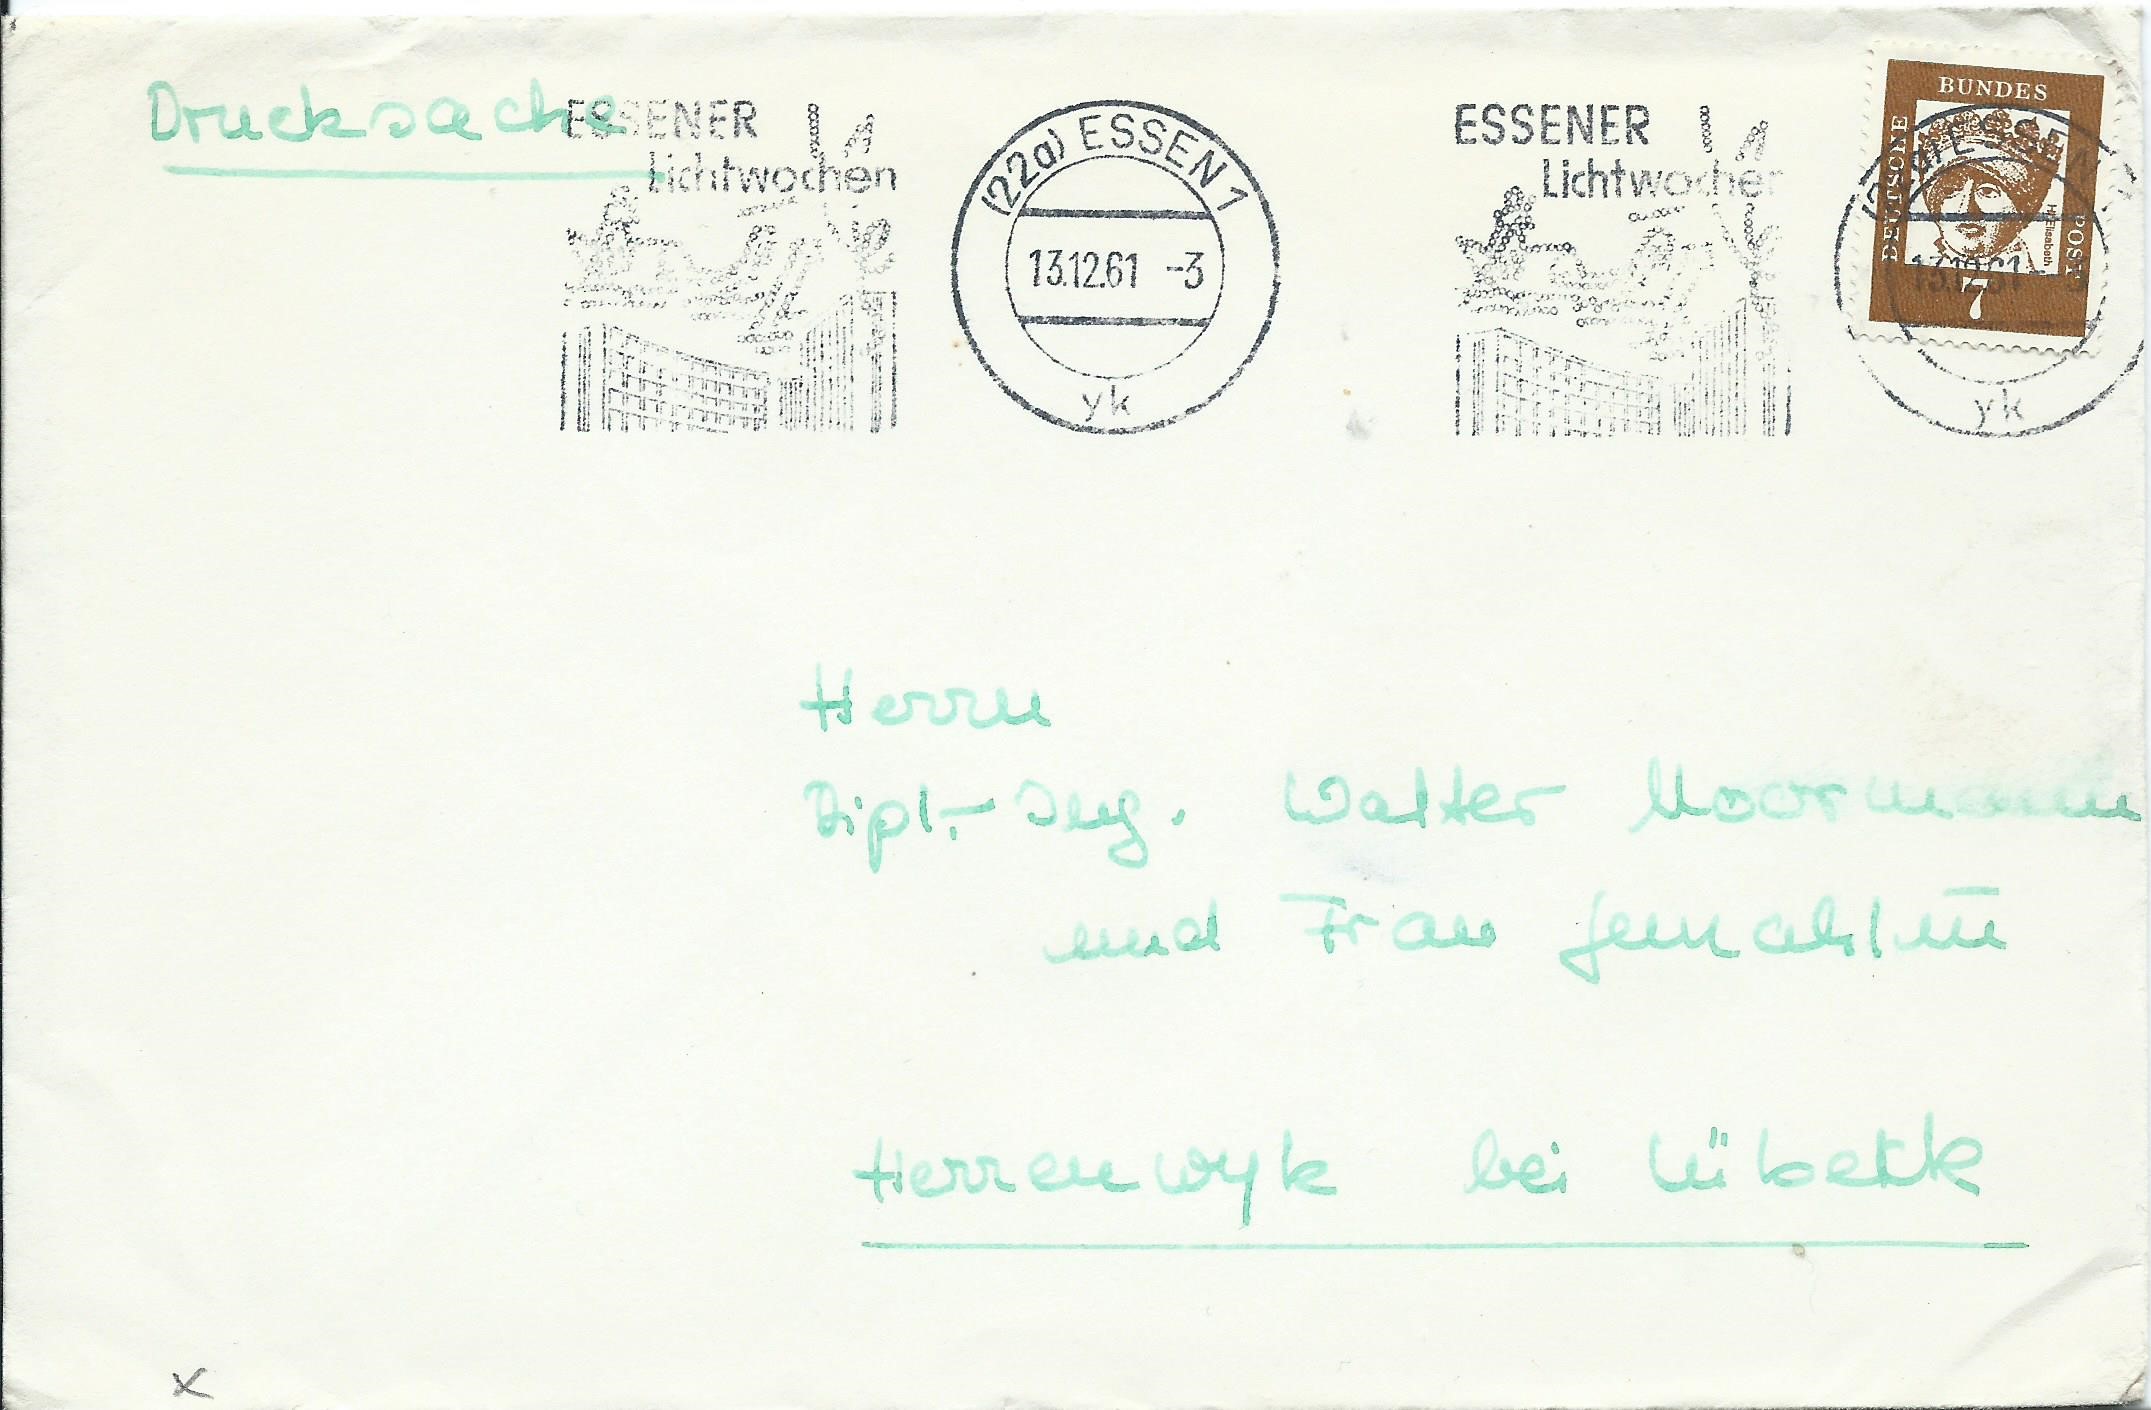 Drucksache
ESSENER
Lichtwochen
(22a) ESSEN 1
13.12.61 -3
yk
ESSENER
Lichtwochen
13.12.61 - 3
yk
DEUTSCHE
BUNDES
POST
Hl. Elisabeth
7
Herrn
Dipl.-Ing. Walter Moormann
und Frau Gemahlin
Herrenwyk bei Lübeck
x